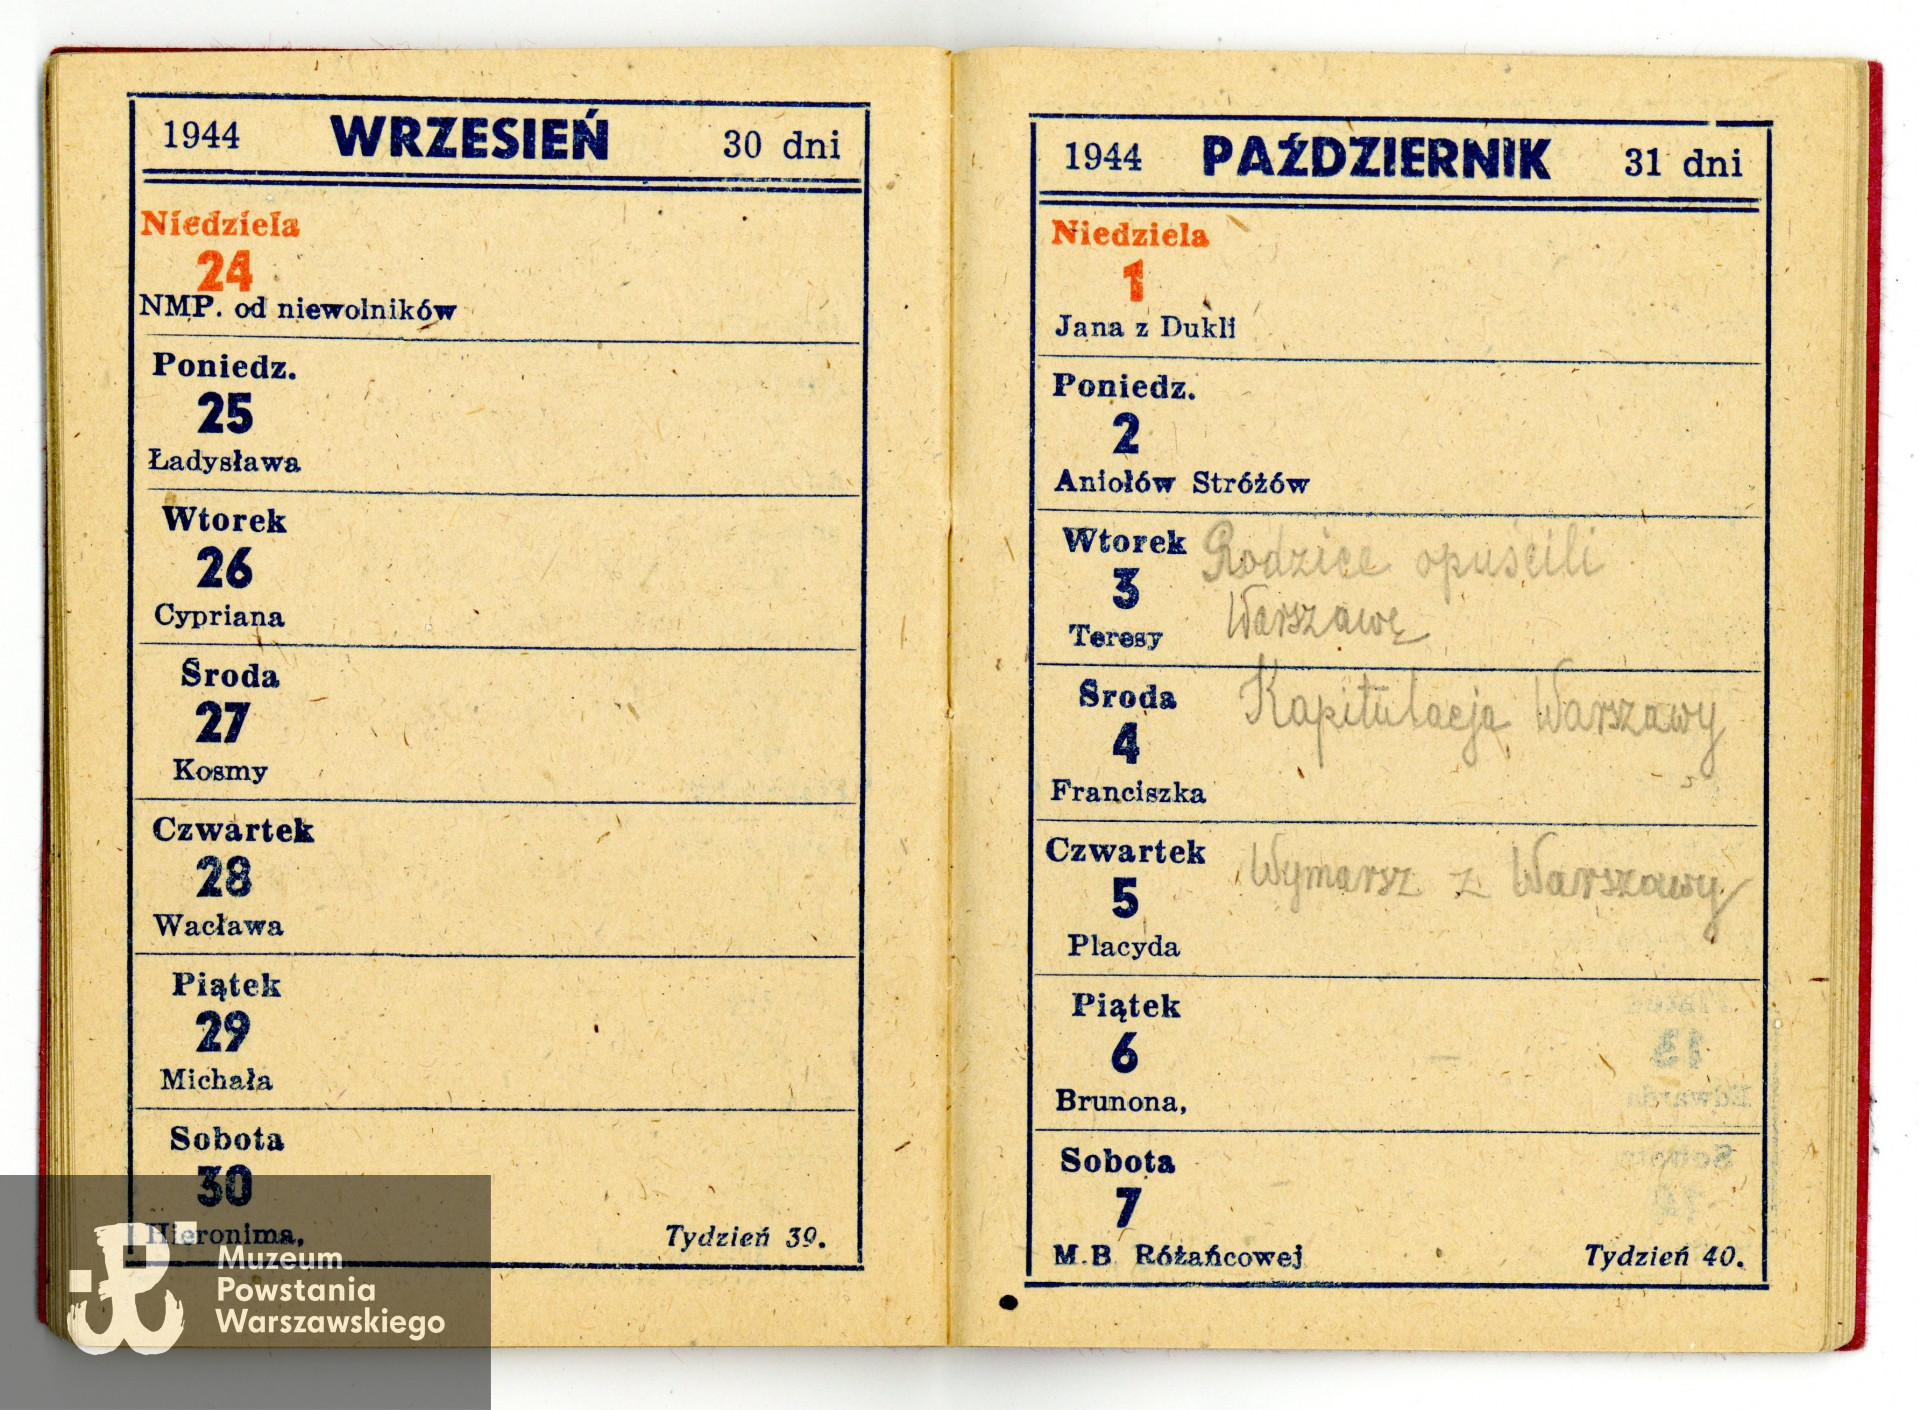 1944 WRZESIEŃ 30 dni
Niedziela
24
NMP. od niewolników
Poniedz.
25
Ładysława
Wtorek
26
Cypriana
Środa
27
Kosmy
Czwartek
28
Wacława
Piątek
29
Michała
Sobota
30
Hieronima, Tydzień 39.
1944 PAŹDZIERNIK 31 dni
Niedziela
1
Jana z Dukli
Poniedz.
2
Aniołów Stróżów
Wtorek Rodzice opuścili
3 Warszawę
Teresy
Środa Kapitulacja Warszawy
4
Franciszka
Czwartek Wymarsz z Warszawy
5
Placyda
Piątek
6
Brunona,
Sobota
7
M.B Różańcowej Tydzień 40.
Muzeum
Powstania
Warszawskiego